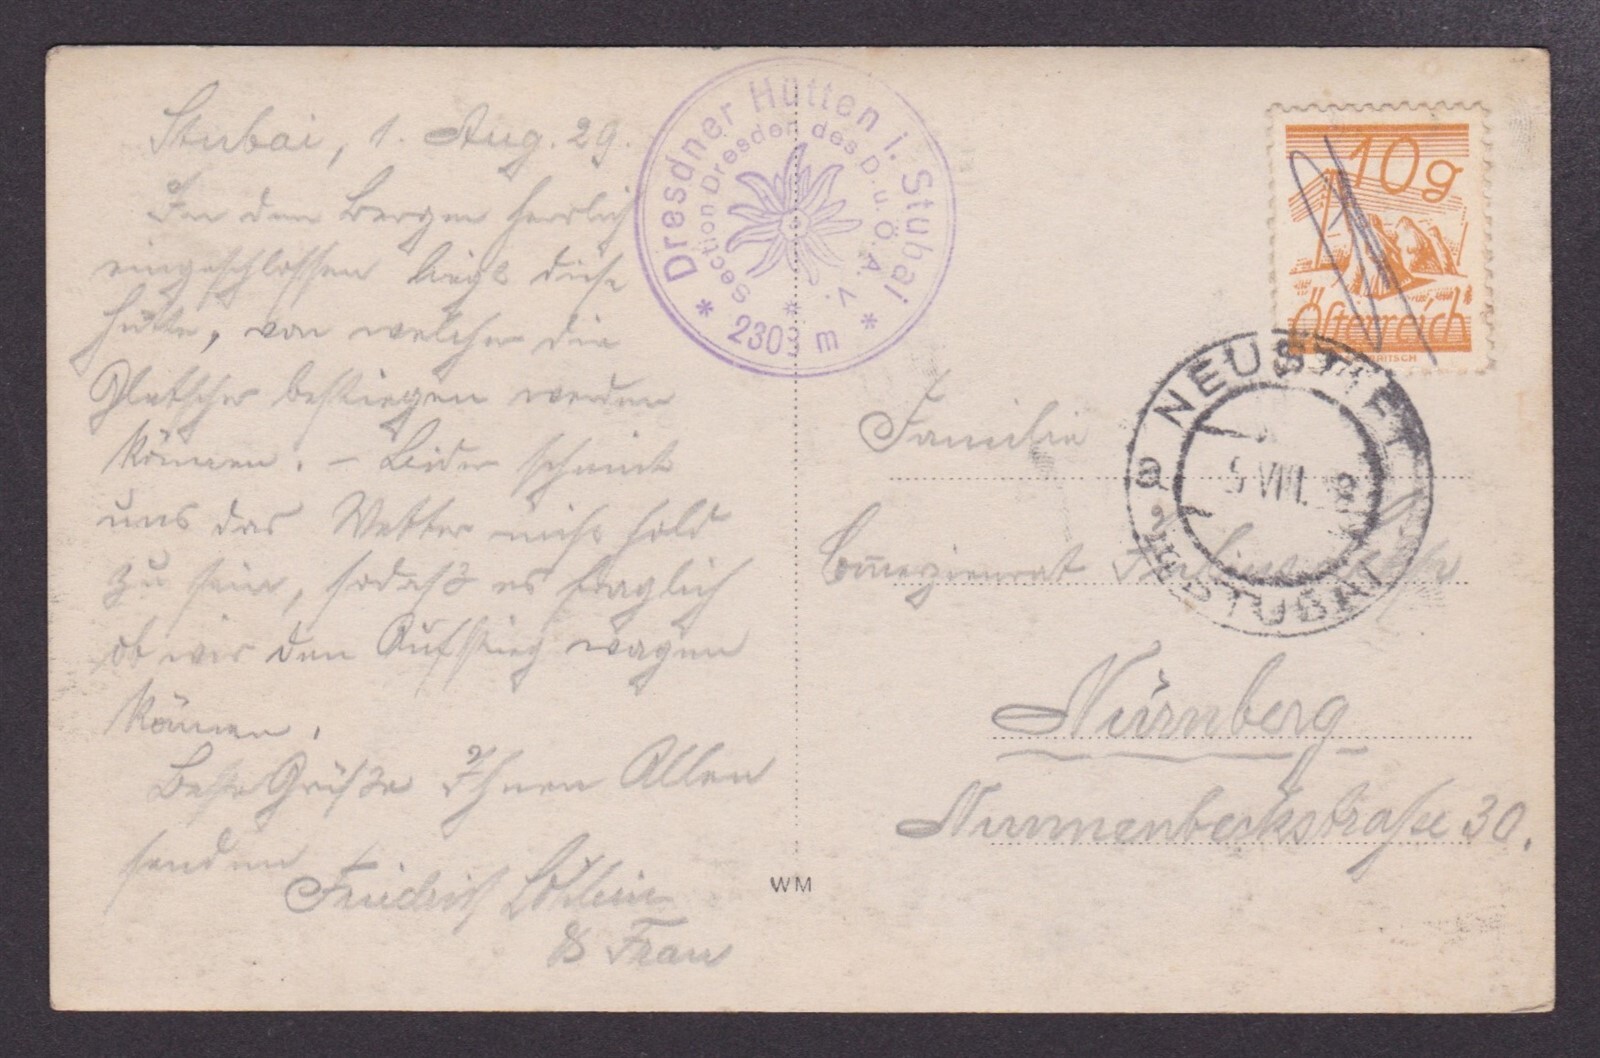 Stubai, 1. Aug. 29.
In den Bergen herrlich
eingeschlossen liegt diese
Hütte, von welcher die
Gletscher bestiegen werden
können. – Leider scheint
uns das Wetter nicht hold
zu sein, sodaß es fraglich
ob wir den Aufstieg wagen
können.
Beste Grüße Ihnen Allen
senden
Friedrich
& Frau
Dresdner Hütten i. Stubai
Section Dresden des D. u. Ö. A. V.
* 230 m *
WM
10g
Österreich
NEUSTIFT
a 5 VIII.
IM STUBAI
Familie
Com̅erzienrat
Nürnberg
Nunnenbeckstraße 30.